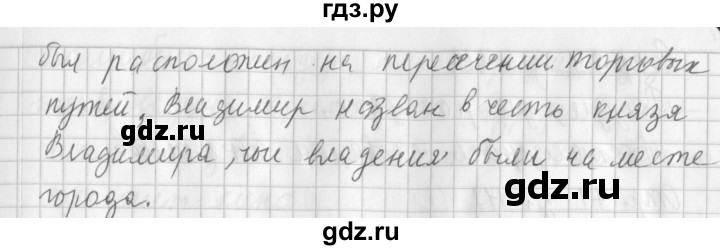 гдз.ру
был расположен на пересечении торговых
путей, Владимир назван в честь князя
gdz.ru
Владимира, чьи владения были на месте
gdz.ru
города.
gdz.ru